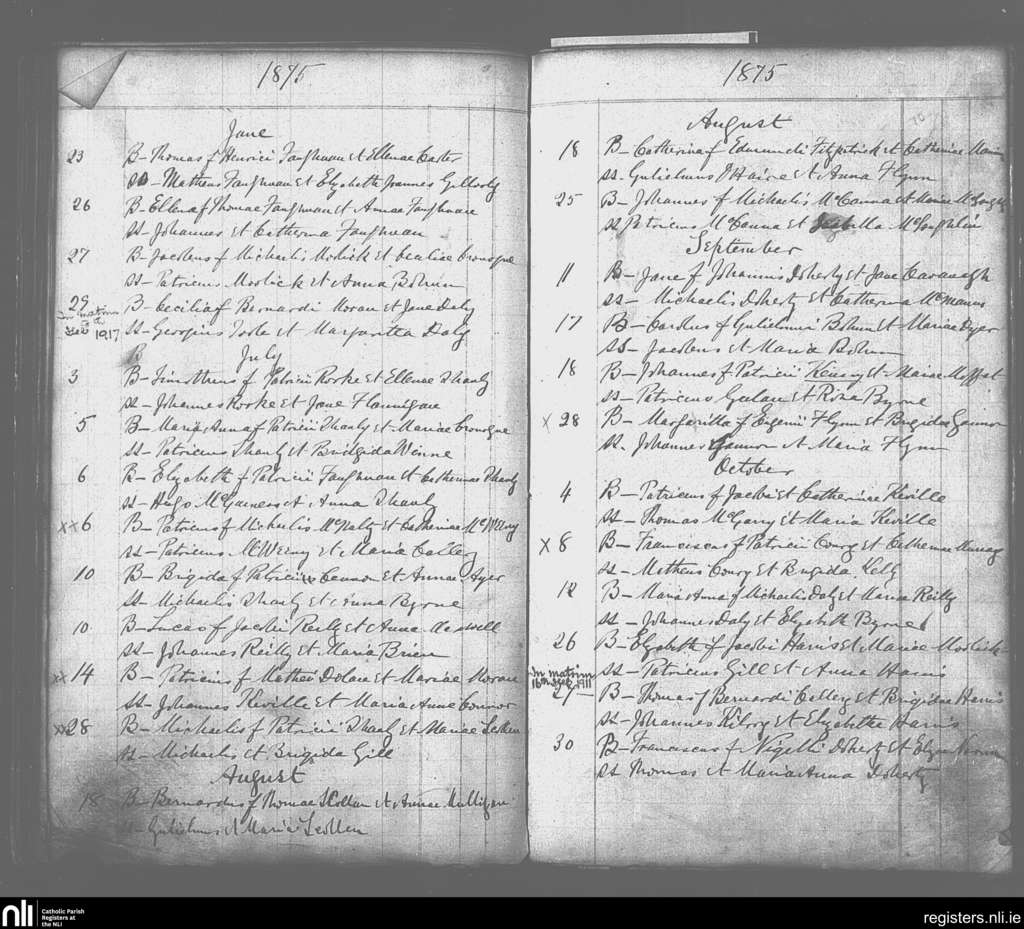 1875
June
23 B- Thomas f Henrici Faughnan et Ellenae Carter
ss- Matheus Faughnan et Elyabeth Joannes
26 B- Ellena f Thomae Faughnan et Annae Faughnan
ss- Johannes et Catherina Faughnan
27 B- Jacobus f Michaelis et Ceciliae Cronogue
ss- Patricius et Anna Bohun
29 B- Cecilia f Bernardi Moran et Jane Daly
in matrim
1917
ss- Georgius et Margaritta Daly
July
3 B- Timotheus f Patricii Rorke et Ellenae Shanly
ss- Johannes Rorke et Jane Flannigan
5 B- Maria Anna f Patricii Shanly et Mariae Cronogue
ss- Patricius Shanly et Bridgida
6 B- Elyabeth f Patricii Faughnan et Catherinae Shanly
ss- Hugo et Anna Shanly
xx 6 B- Patricius f Michaelis McNally et Catherinae
ss- Patricius et Maria
10 B- Brigida f Patricii Cannon et Annae
ss- Michaelis Shanly et Anna Byrne
10 B- Lucas f Jacobi Reilly et Anna
ss- Johannes Reilly et Maria Brien
xx 14 B- Patricius f Mathei Dolan et Mariae Moran
ss- Johannes Keville et Maria Anne Connor
xx 28 B- Michaelis f Patricii Shanly et Mariae
ss- Michaelis et Brigida Gill
August
18 B- Bernardus f Thomae et Annae Mulligan
ss- Gulielmus et Maria
1875
August
18 B- Catherina f Edmundi Fitzpatrick et Catherinae
ss- Gulielmus O'Haire et Anna Flynn
25 B- Johannes f Michaelis McCanna et Mariae
ss Patricius McCanna et McLoughlin
September
11 B- Jane f Johannis Doherty et Jane Cavanagh
ss- Michaelis Doherty et Catherina McManus
17 B- Carolus f Gulielmi Bohun et Mariae Dyer
ss- Jacobus et Maria Bohun
18 B- Johannes f Patricii et Mariae Moffat
ss- Patricius et Rosa Byrne
x 28 B- Margaritta f Eugenii Flynn et Brigidae Gannon
ss. Johannes Gannon et Maria Flynn
October
4 B- Patricius f Jacobi et Catherine Keville
ss- Thomas McGarry et Maria Keville
x 8 B- Franciscus f Patricii Conry et Catherinae Murray
ss- Matheus Conry et Brigida Kelly
12 B- Maria Anna f Michaelis Daly et Maria Reilly
ss- Johannes Daly et Elyabeth Byrne
26 B- Elyabeth f Jacobi Harris et Mariae
in matrim
1911
ss- Patricius Gill et Anna Harris
27 B- Thomas f Bernardi et Brigidae Harris
ss- Johannes Kilroy et Elyabetha Harris
30 B- Franciscus f Nigelli Doherty et
ss Thomas et Maria Anna Doherty
nli
Catholic Parish
Registers at
the NLI
registers.nli.ie